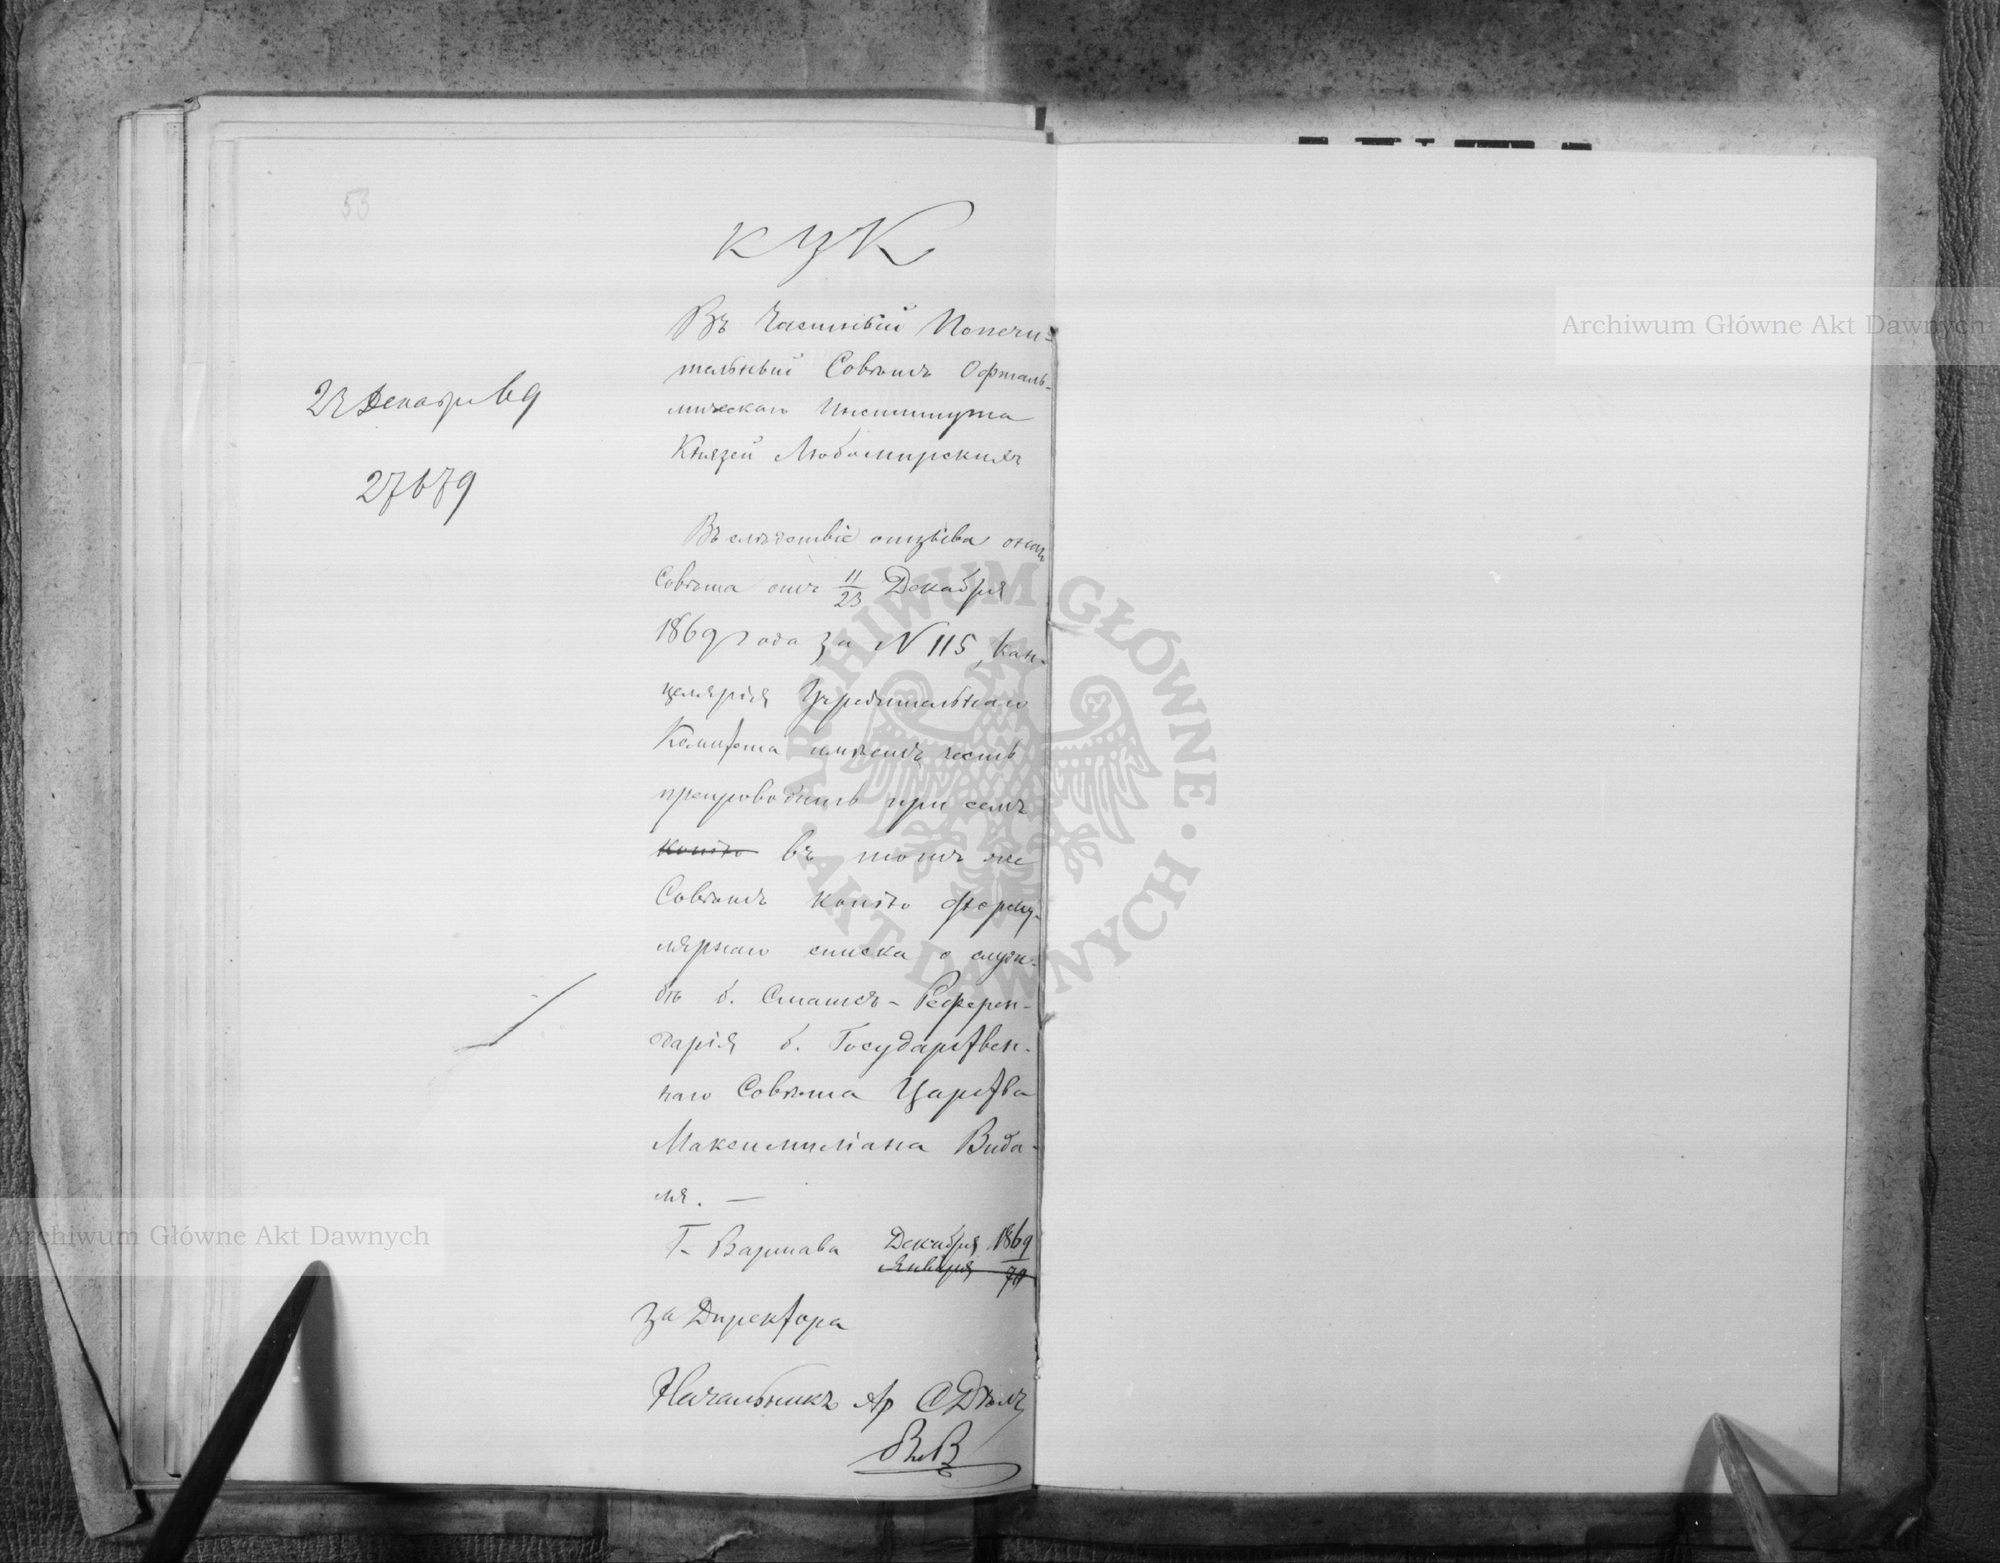 53
КУК
Въ Частный Попечи=
тельный Совѣтъ Офталь-
мическаго Института
Князей Любомирскихъ
Декабря 69
27679
Въ слѣдствіе отзыва онаго
Совѣта отъ 11/23 Декабря
1869 года за N 115, Кан-
целярія Учредительнаго
Комитета имѣетъ честь
препроводить при семъ
копію въ тотъ же
Совѣтъ копію формуляр-
лярнаго списка о служ-
бѣ б. Статсъ-Референ-
дарія б. Государствен-
наго Совѣта Царства
Максимиліана Вида-
ля. —
Г. Варшава Декабря 1869
Января 70
За Директора
Начальникъ
Archiwum Główne Akt Dawnych
Archiwum Główne Akt Dawnych
ARCHIWUM GŁÓWNE · AKT DAWNYCH ·